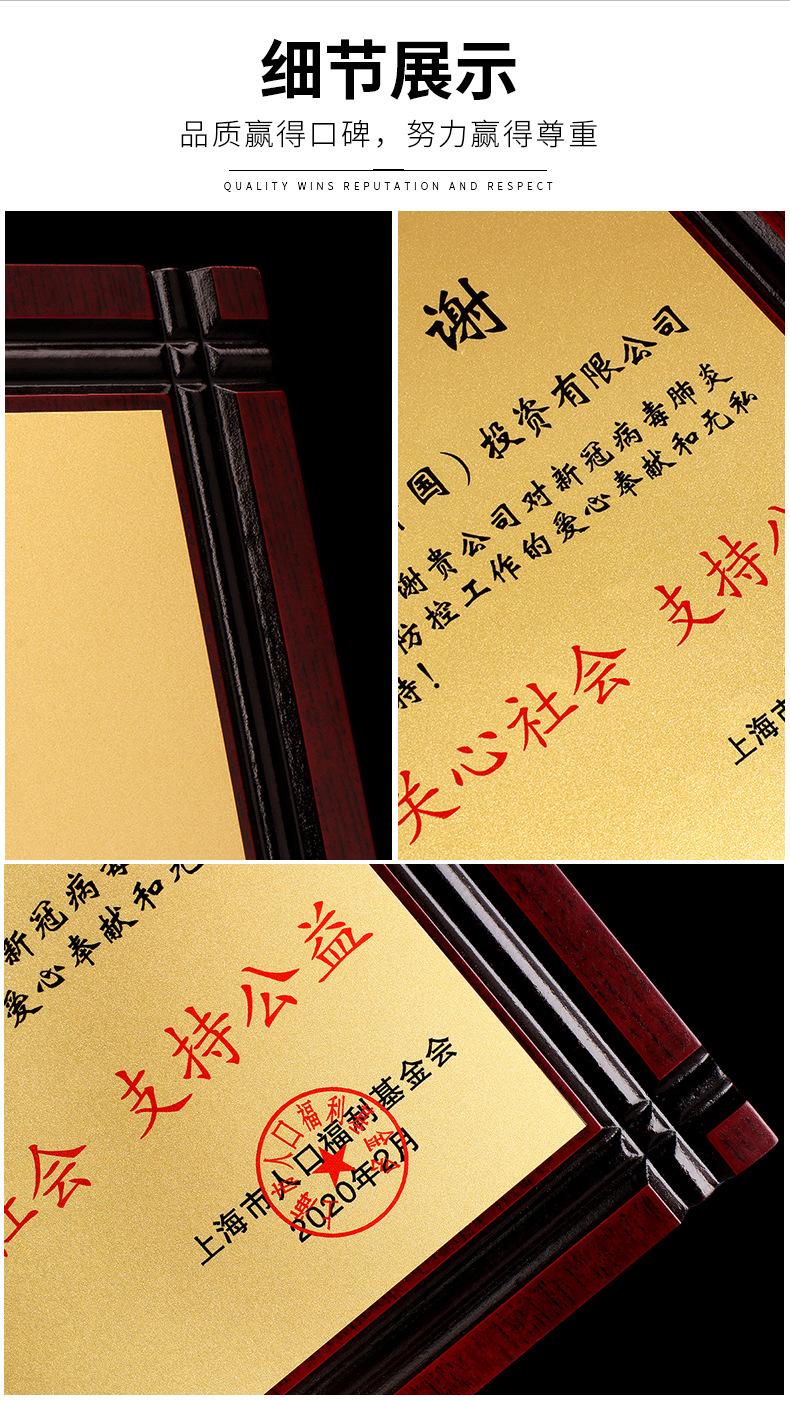 细节展示
品质赢得口碑，努力赢得尊重
QUALITY WINS REPUTATION AND RESPECT
谢
国）投资有限公司
谢贵公司对新冠病毒肺炎
防控工作的爱心奉献和无私
持！
关心社会 支持公
上海市
新冠病毒
爱心奉献和无
社会 支持公益
上海市人口福利基金会
2020年2月
人口福利基金会